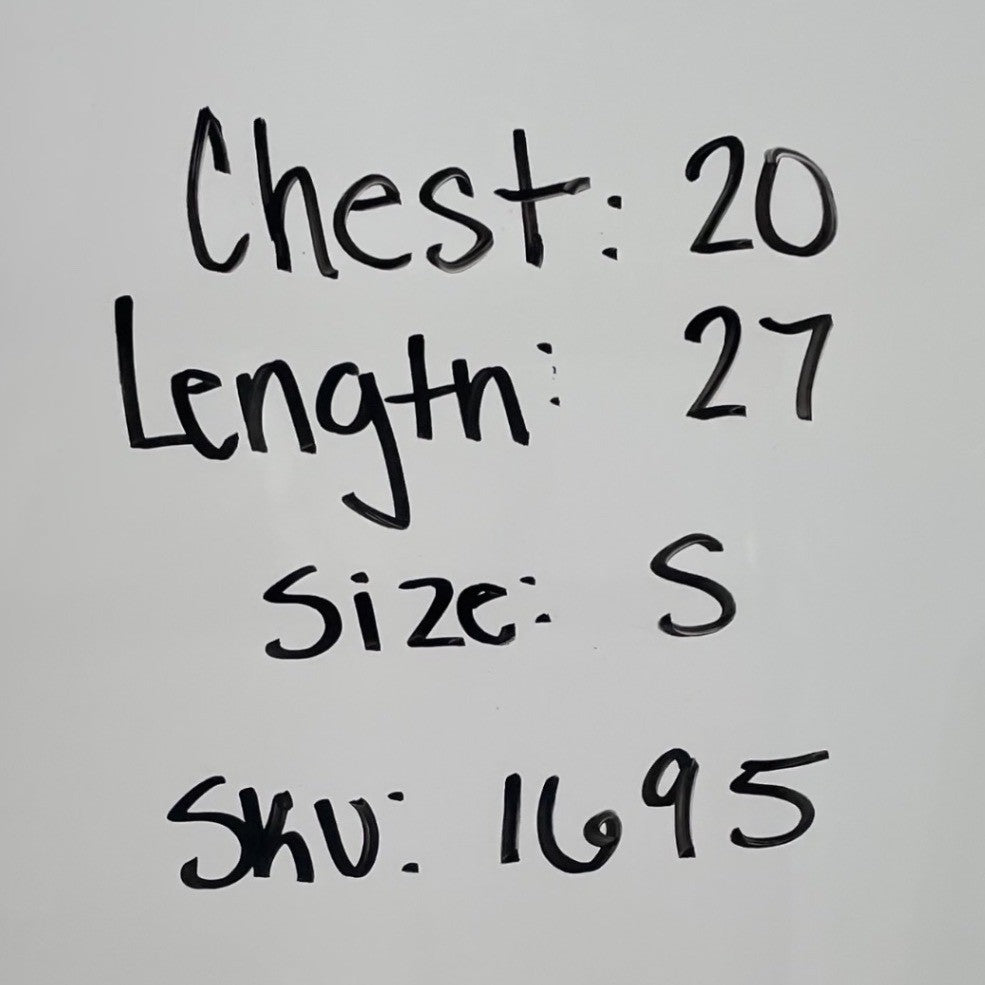 Chest: 20
Length: 27
Size: S
SKU: 1695